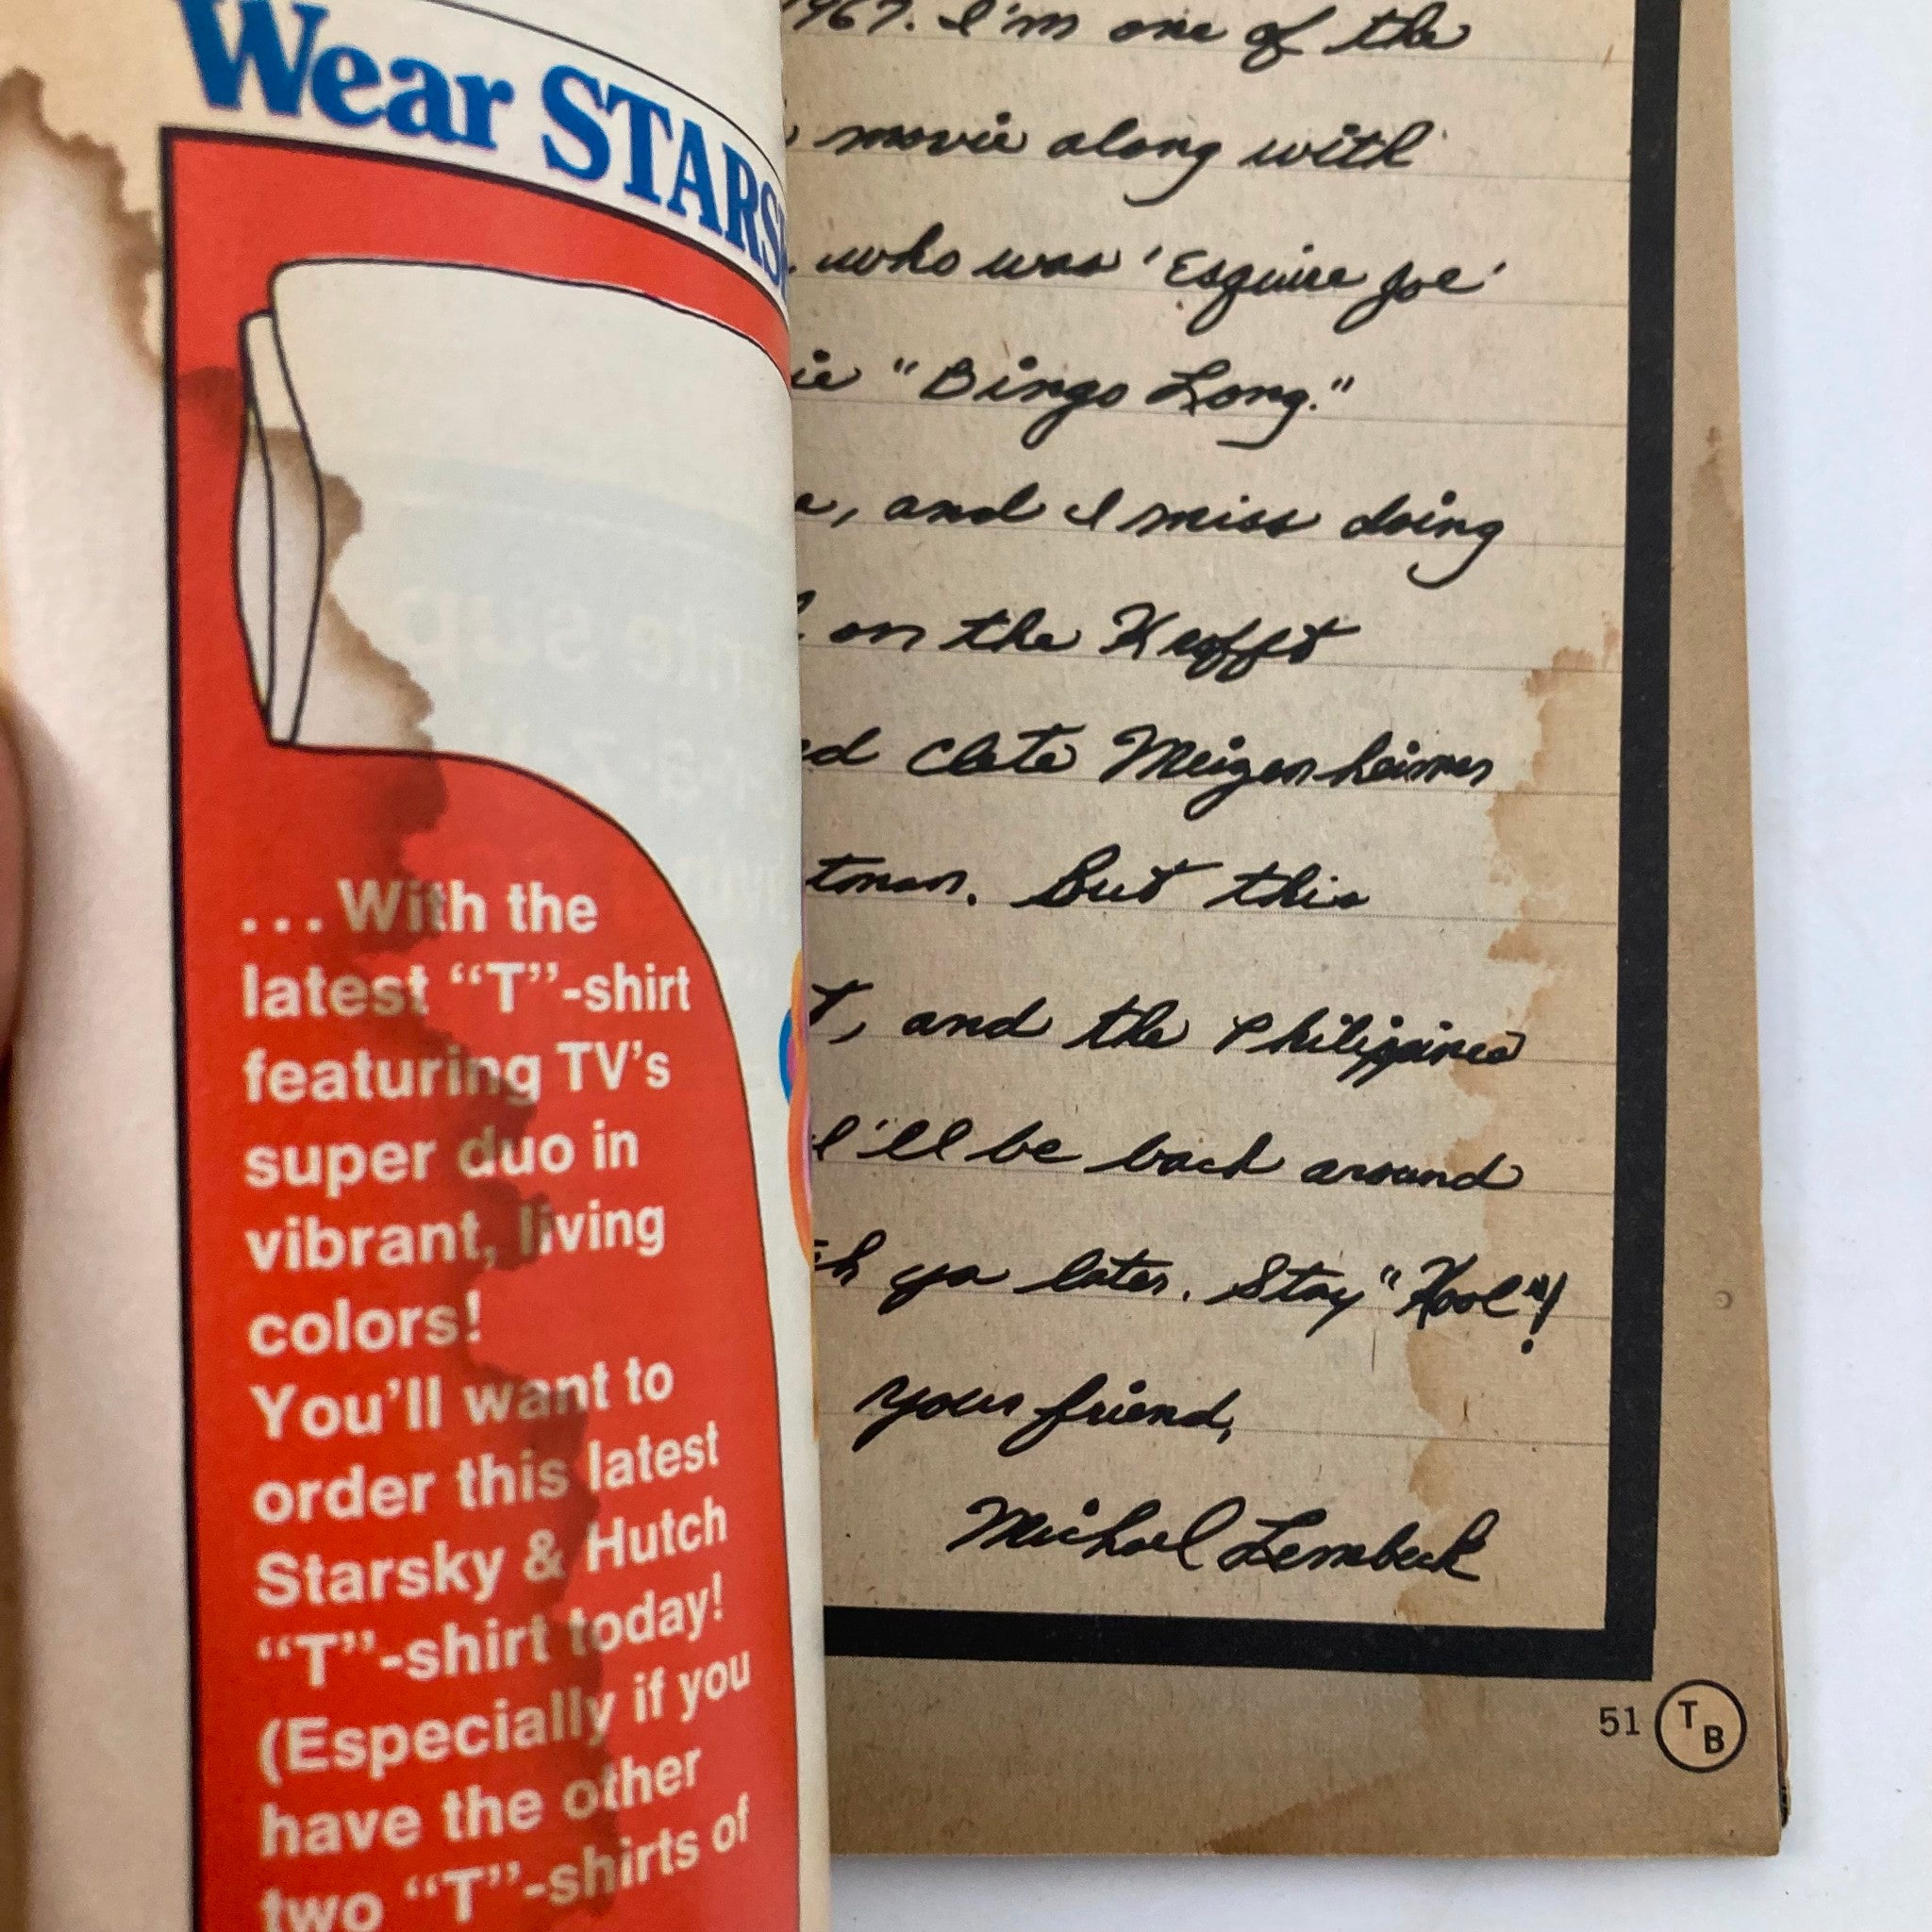 Wear STARS
... With the
latest “T”-shirt
featuring TV’s
super duo in
vibrant, living
colors!
You’ll want to
order this latest
Starsky & Hutch
“T”-shirt today!
(Especially if you
have the other
two “T”-shirts of
1967. I'm one of the
movie along with
who was 'Esquire Joe'
"Bingo Long."
, and I miss doing
on the Krofft
Clete Meizenheimer
But this
, and the Philippines
I'll be back around
ya later. Stay "Kool"!
your friend,
Michael Lembeck
51 TB